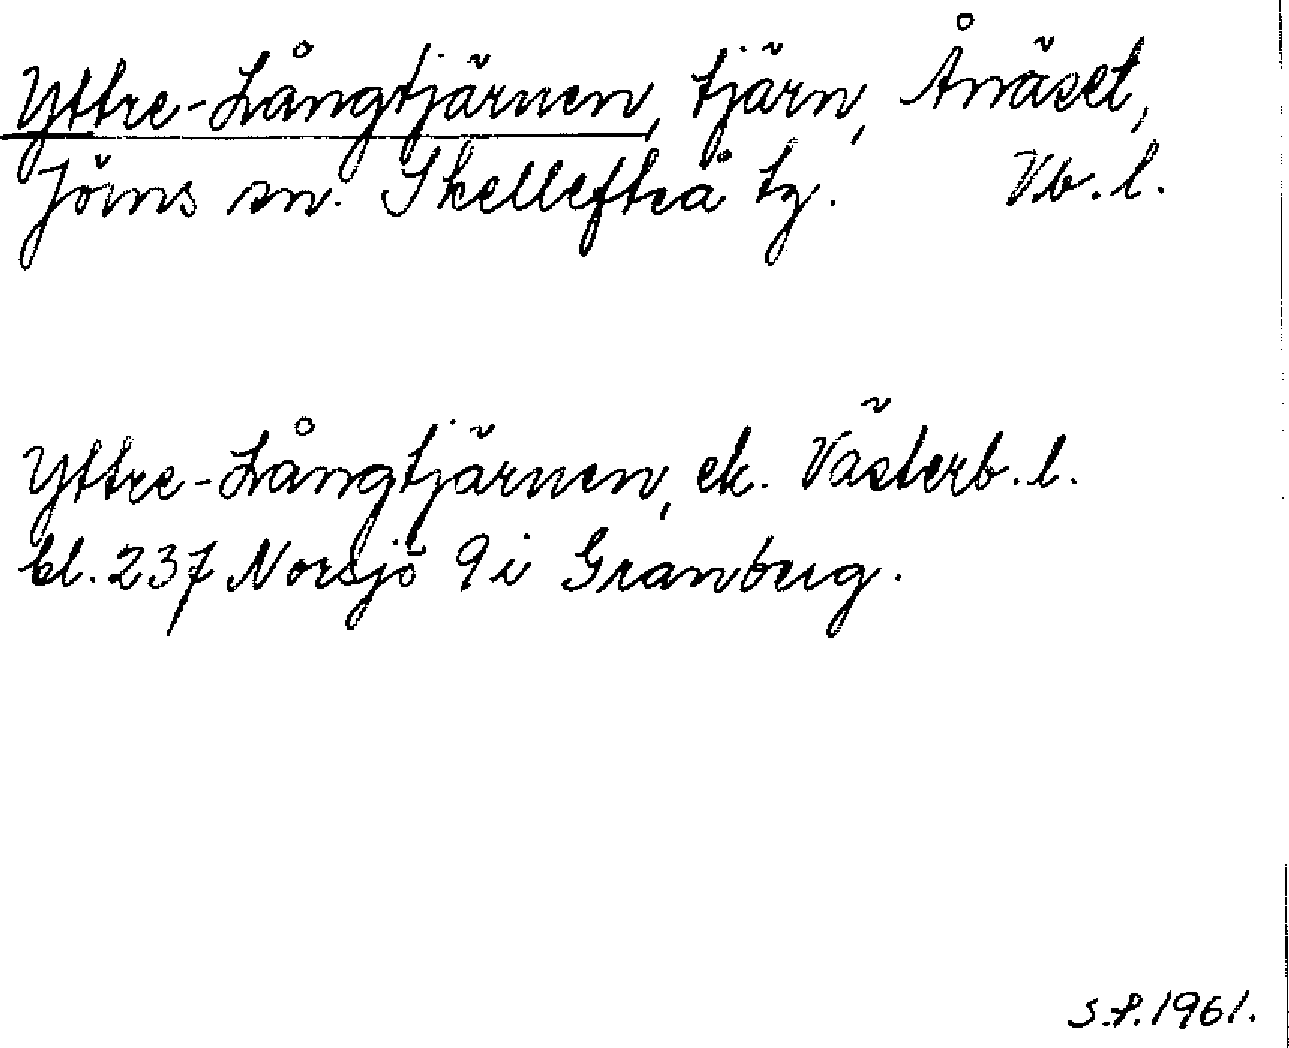 Yttre-Långtjärnen, tjärn, Ånäset,
Jörns sn. Skellefteå tg. Vb. l.
Yttre-Långtjärnen, ek. Västerb. l.
bl. 237 Norsjö 9 i Granberg.
S.P. 1961.